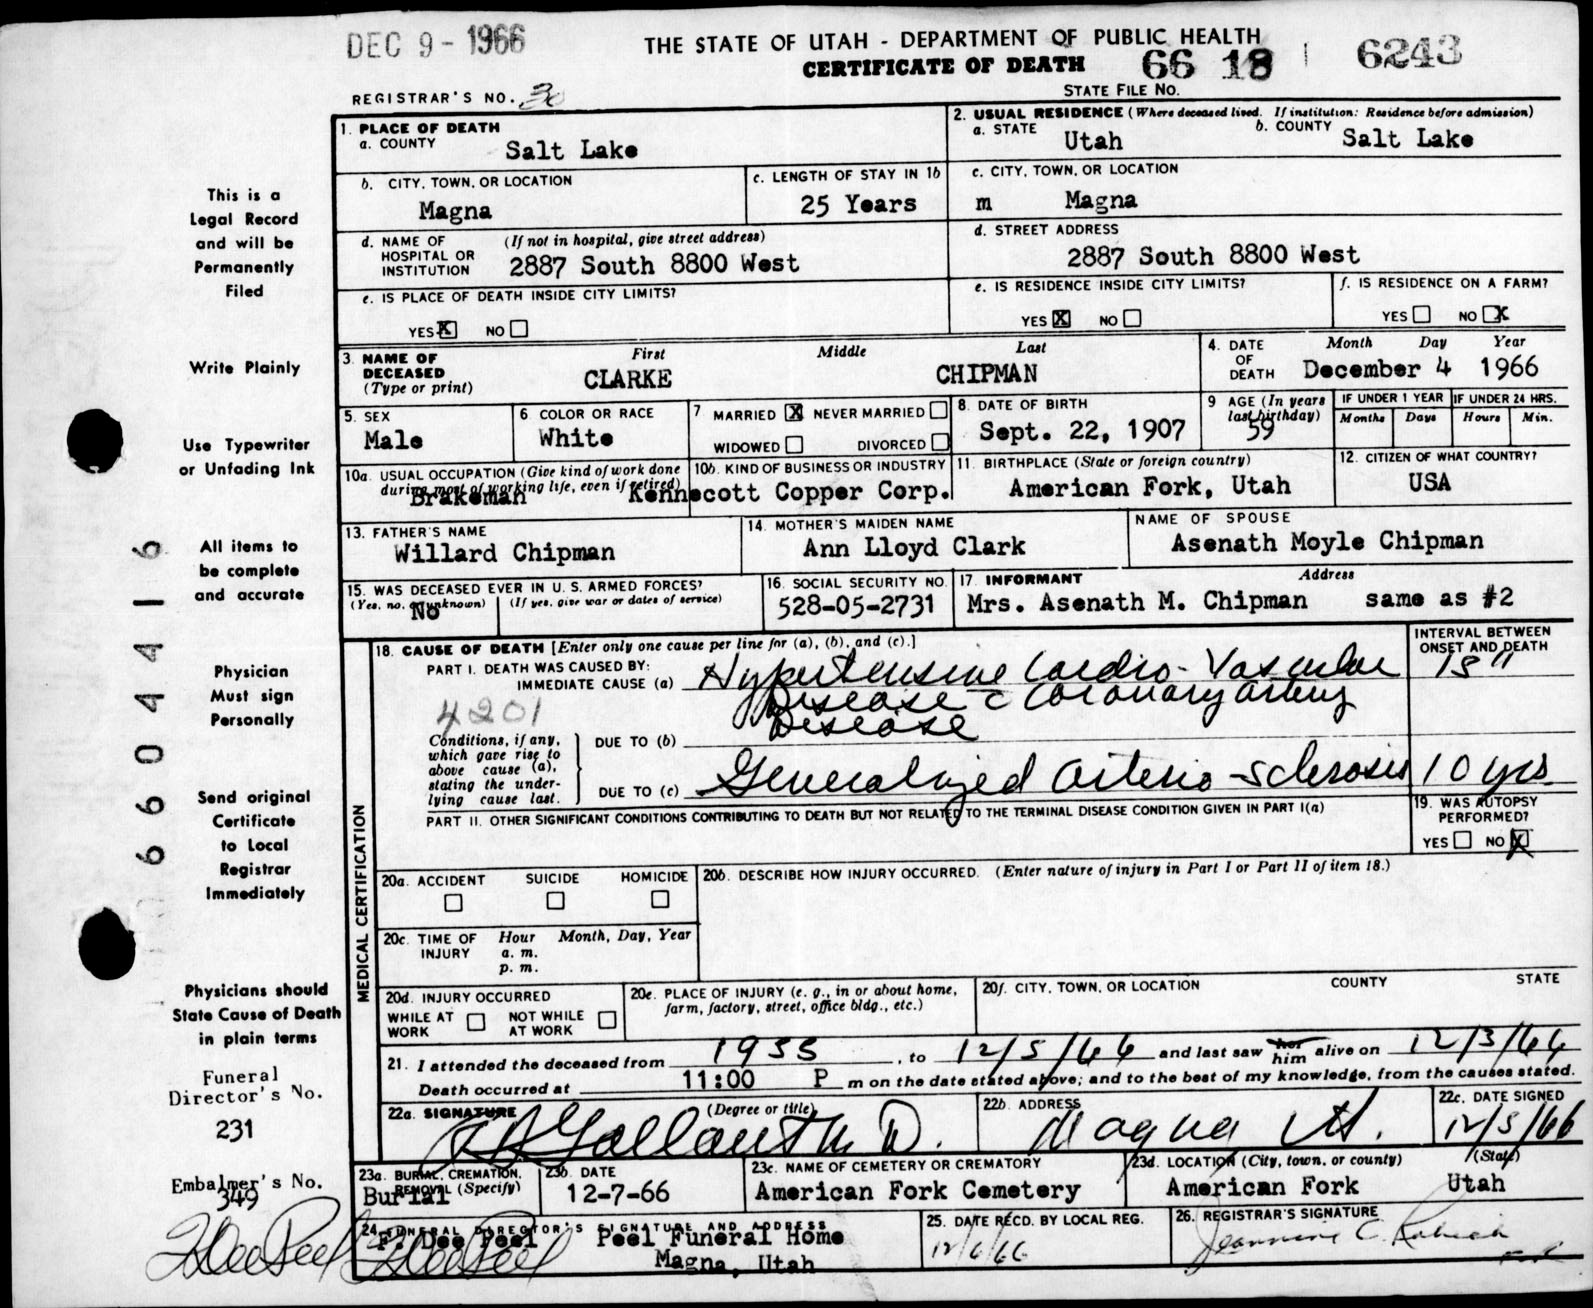 DEC 9 - 1966
THE STATE OF UTAH - DEPARTMENT OF PUBLIC HEALTH
CERTIFICATE OF DEATH 66 18 6243
REGISTRAR'S NO. 30
STATE FILE NO.
1. PLACE OF DEATH
a. COUNTY Salt Lake
2. USUAL RESIDENCE (Where deceased lived. If institution: Residence before admission)
a. STATE Utah b. COUNTY Salt Lake
b. CITY, TOWN, OR LOCATION Magna
c. LENGTH OF STAY IN 1b 25 Years
c. CITY, TOWN, OR LOCATION
m Magna
d. NAME OF HOSPITAL OR INSTITUTION (If not in hospital, give street address) 2887 South 8800 West
d. STREET ADDRESS 2887 South 8800 West
e. IS PLACE OF DEATH INSIDE CITY LIMITS?
YES X NO
e. IS RESIDENCE INSIDE CITY LIMITS?
YES X NO
f. IS RESIDENCE ON A FARM?
YES NO X
3. NAME OF DECEASED (Type or print) First Middle Last
CLARKE CHIPMAN
4. DATE OF DEATH Month Day Year
December 4 1966
5. SEX Male
6 COLOR OR RACE White
7 MARRIED X NEVER MARRIED
WIDOWED DIVORCED
8. DATE OF BIRTH Sept. 22, 1907
9 AGE (In years last birthday) 59
IF UNDER 1 YEAR Months Days
IF UNDER 24 HRS. Hours Min.
10a. USUAL OCCUPATION (Give kind of work done during most of working life, even if retired) Brakeman
10b. KIND OF BUSINESS OR INDUSTRY Kennecott Copper Corp.
11. BIRTHPLACE (State or foreign country) American Fork, Utah
12. CITIZEN OF WHAT COUNTRY? USA
13. FATHER'S NAME Willard Chipman
14. MOTHER'S MAIDEN NAME Ann Lloyd Clark
NAME OF SPOUSE Asenath Moyle Chipman
15. WAS DECEASED EVER IN U. S. ARMED FORCES?
(Yes, no, or unknown) (If yes, give war or dates of service)
No
16. SOCIAL SECURITY NO. 528-05-2731
17. INFORMANT Address
Mrs. Asenath M. Chipman same as #2
18. CAUSE OF DEATH [Enter only one cause per line for (a), (b), and (c).]
INTERVAL BETWEEN ONSET AND DEATH
PART I. DEATH WAS CAUSED BY:
IMMEDIATE CAUSE (a) Hypertensive Cardio-Vascular 15"
Disease c Coronary artery
Disease
4201
Conditions, if any, which gave rise to above cause (a), stating the underlying cause last.
DUE TO (b)
DUE TO (c) Generalized Arterio-sclerosis 10 yrs
PART II. OTHER SIGNIFICANT CONDITIONS CONTRIBUTING TO DEATH BUT NOT RELATED TO THE TERMINAL DISEASE CONDITION GIVEN IN PART I(a)
19. WAS AUTOPSY PERFORMED?
YES NO X
MEDICAL CERTIFICATION
20a. ACCIDENT SUICIDE HOMICIDE
20b. DESCRIBE HOW INJURY OCCURRED. (Enter nature of injury in Part I or Part II of item 18.)
20c. TIME OF INJURY Hour Month, Day, Year
a. m.
p. m.
20d. INJURY OCCURRED
WHILE AT WORK NOT WHILE AT WORK
20e. PLACE OF INJURY (e. g., in or about home, farm, factory, street, office bldg., etc.)
20f. CITY, TOWN, OR LOCATION COUNTY STATE
21. I attended the deceased from 1955, to 12/5/66 and last saw her him alive on 12/3/66
Death occurred at 11:00 P m on the date stated above; and to the best of my knowledge, from the causes stated.
22a. SIGNATURE (Degree or title) Gallant M D.
22b. ADDRESS Magna Ut.
22c. DATE SIGNED 12/5/66
23a. BURIAL, CREMATION, REMOVAL (Specify) Burial
23b. DATE 12-7-66
23c. NAME OF CEMETERY OR CREMATORY American Fork Cemetery
23d. LOCATION (City, town, or county) (State)
American Fork Utah
24. FUNERAL DIRECTOR'S SIGNATURE AND ADDRESS
F. Dee Peel Peel Funeral Home
Magna, Utah
25. DATE RECD. BY LOCAL REG. 12/6/66
26. REGISTRAR'S SIGNATURE
Jeannine C.
This is a
Legal Record
and will be
Permanently
Filed
Write Plainly
Use Typewriter
or Unfading Ink
All items to
be complete
and accurate
Physician
Must sign
Personally
Send original
Certificate
to Local
Registrar
Immediately
Physicians should
State Cause of Death
in plain terms
Funeral
Director's No.
231
Embalmer's No.
349
F Dee Peel F Dee Peel
66044 16